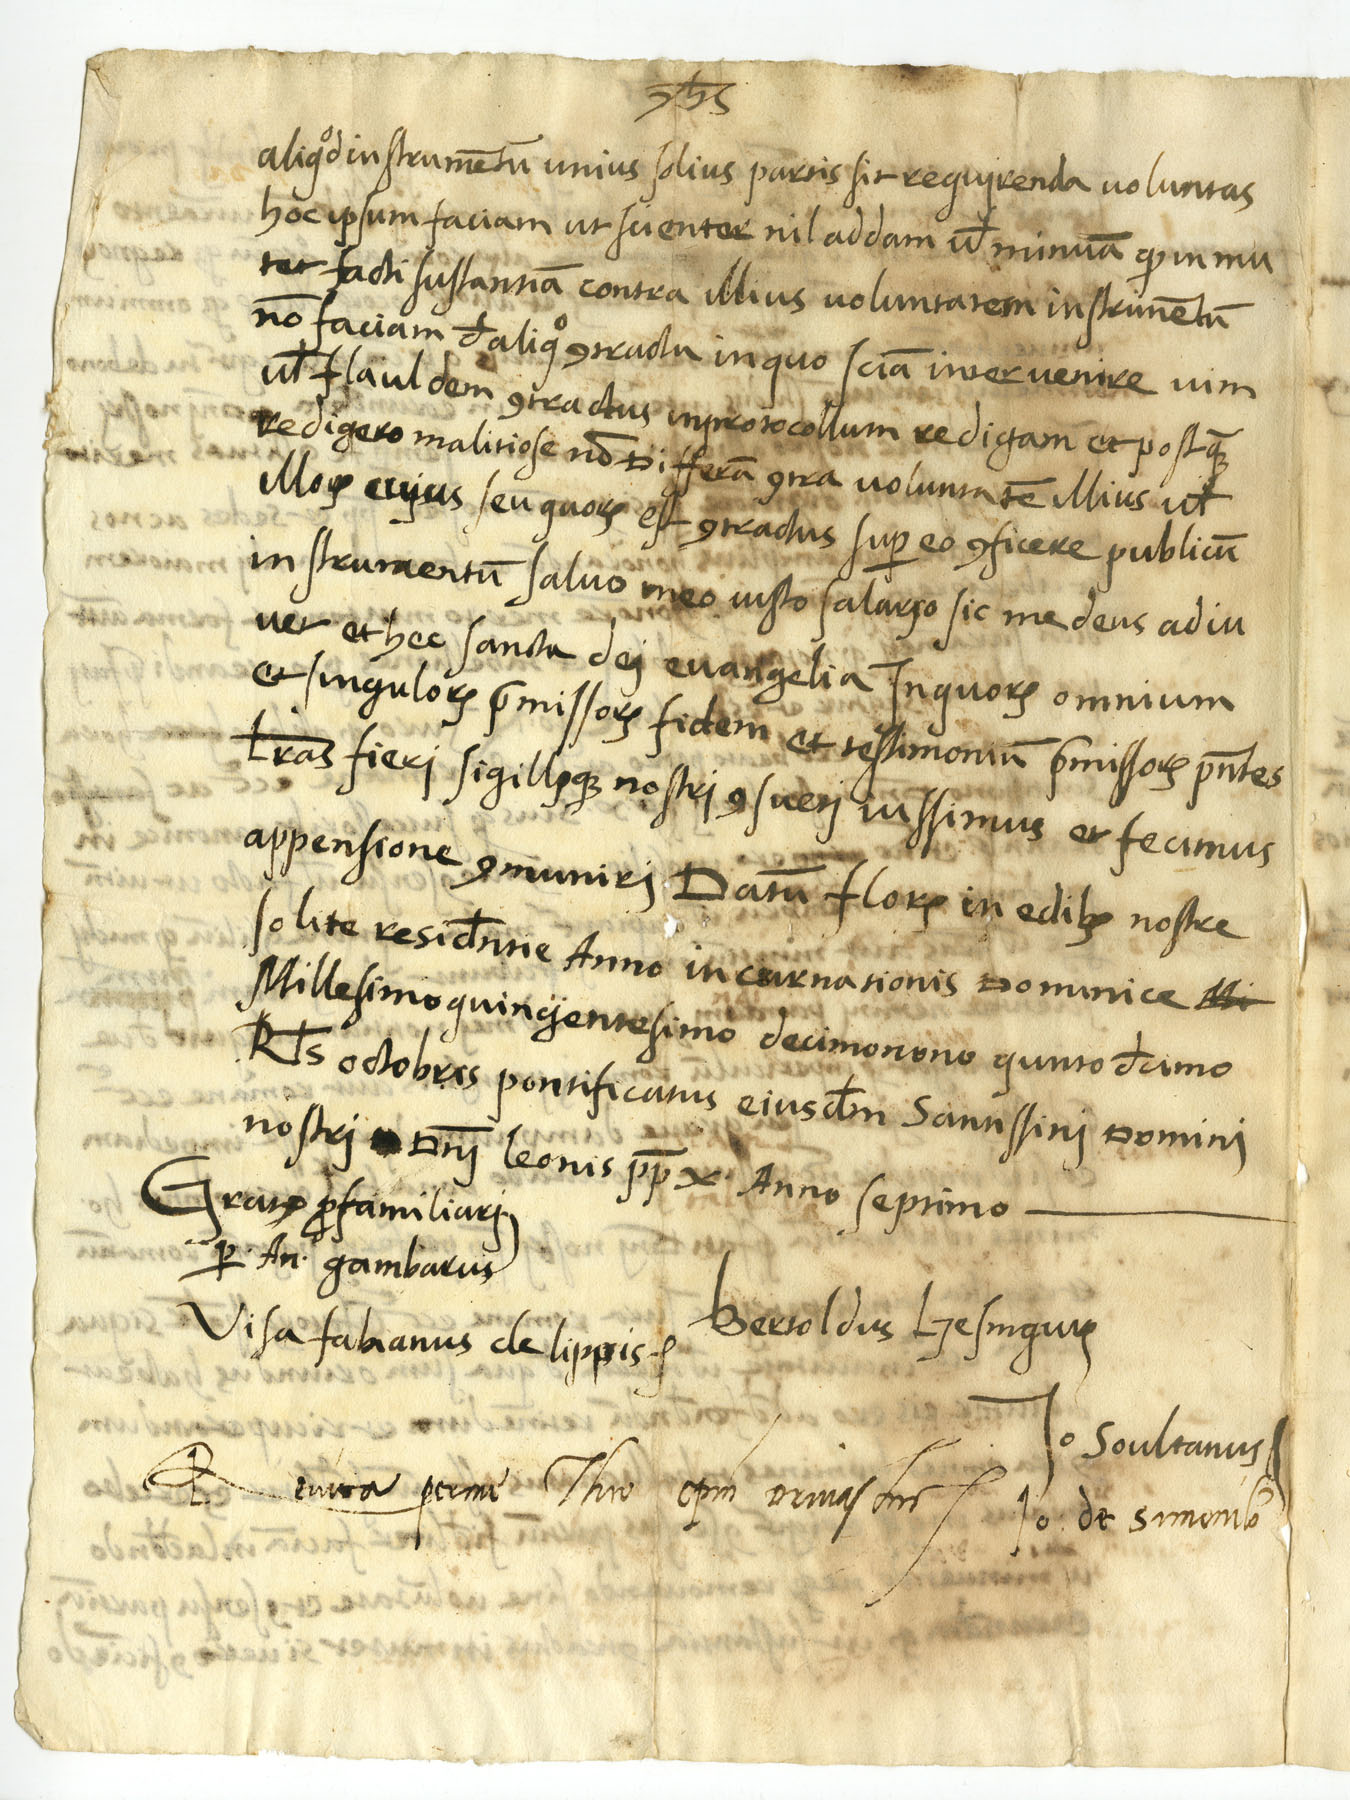 yhs
aliqod instrumētū unius solius partis sit requirenda voluntas
hoc ipsum faciam ut scienter nil addam ul minuā qꝫ inmu
tet facti sustantiā contra illius voluntatem instrumētū
nō faciam d aliqo ꝯtractu in quo sciā intervenire vim
ul flaudem ꝯtractus in protocollum redigam et postquā
redigero malitiose nō differā ꝯtra voluntatē illius ul
illoꝝ cujus seu quoꝝ est ꝯtractus suꝑ eo ꝯficere publicū
instrumentū salvo meo iusto salario sic me deus adiu
vet et hec sancta dej evangelia Inquoꝝ omnium
et singuloꝝ p̄missoꝝ fidem et testimoniū p̄missoꝝ pn̄tes
lras fierj sigilliqꝫ nostrj ꝯsuetj iussimus et fecimus
appensione ꝯmunirj Datū floꝝ in edibꝫ nostre
solite residentie Anno incarnationis Dominice
Millesimoquingentesimo decimonono quinto dcimo
Kls octobris pontificatus eiusdm Santissimj Dominj
nostrj Dn̄j leonis pp̄ x. Anno septimo
Gratꝭ ꝓ familiarj
ꝑ. An. gambarus
Visa fabianus de lippis
Bertoldus
Jo Soultanus
per me Theo epm
Jo de simonibꝫ